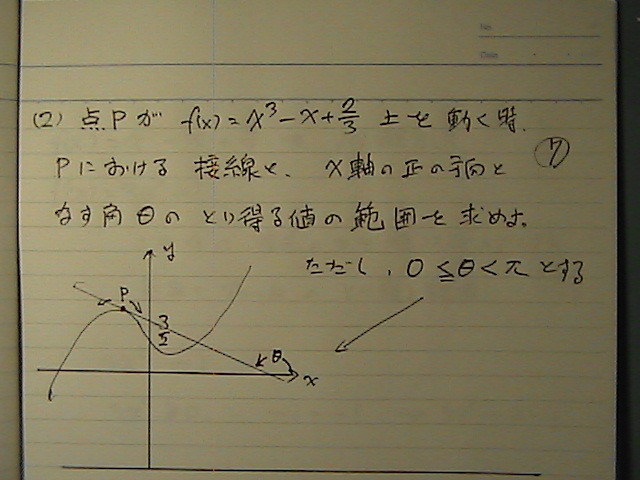 No.
Date
(2) 点Pが f(x)=x³-x+2/3 上を動く時.
Pにおける 接線と、x軸の正の方向と ⑦
なす角θの とり得る値の範囲を求めよ。
ただし、0≦θ<πとする
y
P
θ
x